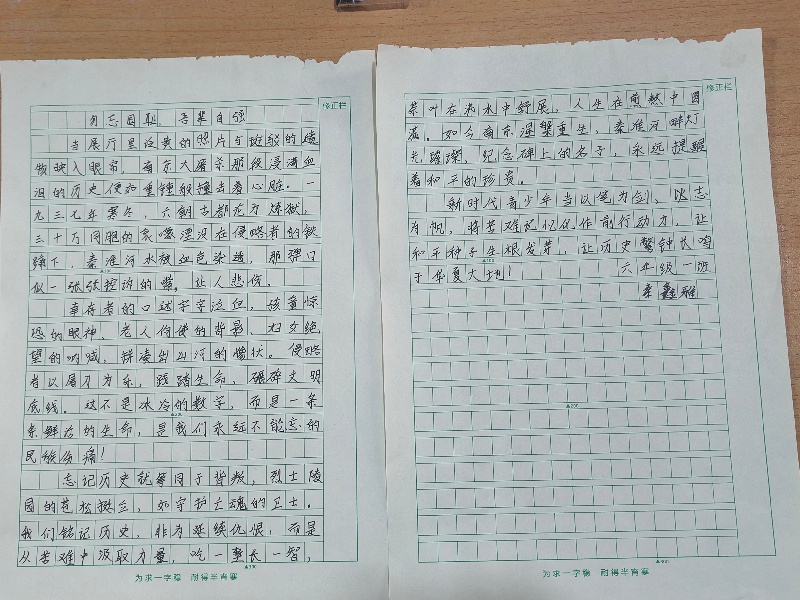 勿忘国耻 吾辈自强
修正栏
当展厅里泛黄的照片与斑驳的遗
骸映入眼帘，南京大屠杀那段浸满血
泪的历史便如重锤般撞击着心脏。一
九三七年寒冬，六朝古都花为炼狱，
三十万同胞的哀嚎湮没在侵略者的铁
蹄下，秦淮河水被血色染透，那弹口
似一张张控诉的嘴，让人悲伤。
幸存者的口述字字泣血，孩童惊
恐的眼神、老人佝偻的背影、妇女绝
望的呐喊，拼凑出血污的惨状。侵略
者以屠刀为乐，践踏生命，碾碎文明
底线。这不是冰冷的数字，而是一条
条鲜活的生命，是我们永远不能忘的
民族伤痛！
忘记历史就等同于背叛，烈士陵
园的苍松挺立，如守护亡魂的卫士。
我们铭记历史，非为延续仇恨，而是
从苦难中汲取力量，吃一堑长一智，
为求一字稳 耐得半宵寒
修正栏
茶叶在沸水中舒展，人生在煎熬中圆
满。如今南京涅槃重生，秦淮河畔灯
光璀璨，纪念碑上的名字，永远提醒
着和平的珍贵。
新时代青少年当以笔为剑、以志
为帆，将苦难记忆化作前行动力，让
和平种子生根发芽，让历史警钟长鸣
于华夏大地！ 六年级一班
鑫雅
为求一字稳 耐得半宵寒